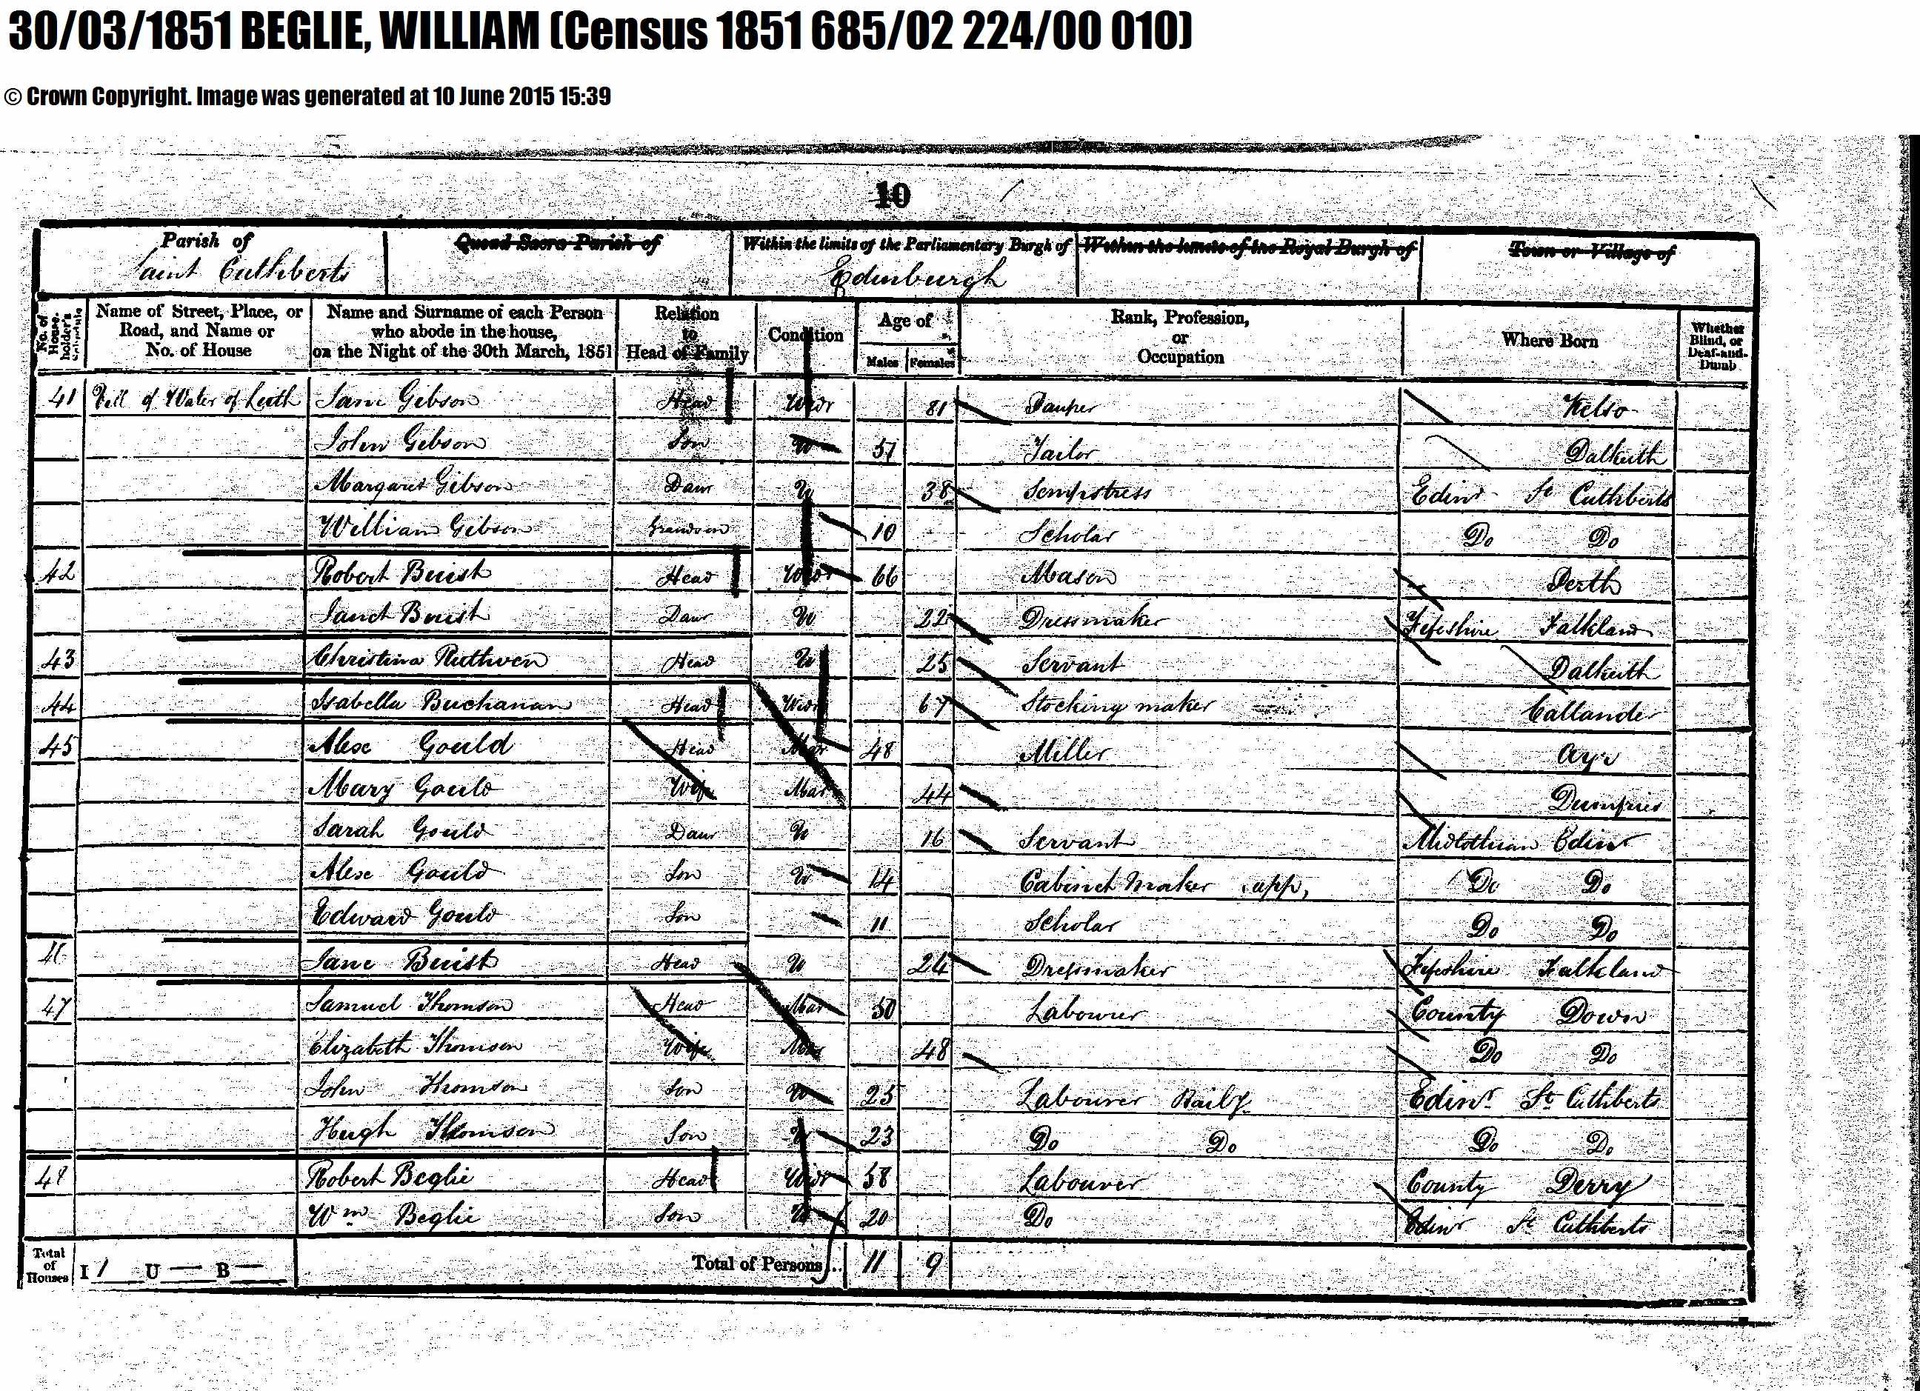 30/03/1851 BEGLIE, WILLIAM (Census 1851 685/02 224/00 010)
© Crown Copyright. Image was generated at 10 June 2015 15:39
10
Parish of Quoad Sacra Parish of Within the limits of the Parliamentary Burgh of Within the limits of the Royal Burgh of Town or Village of
Saint Cuthberts Edinburgh
No. of House-holder's Schedule Name of Street, Place, or Road, and Name or No. of House Name and Surname of each Person who abode in the house, on the Night of the 30th March, 1851 Relation to Head of Family Condition Age of Males Females Rank, Profession, or Occupation Where Born Whether Blind, or Deaf-and-Dumb
41 of Water of Leith Jane Gibson Head Widr 81 Pauper Kelso
John Gibson Son U 57 Tailor Dalkeith
Margaret Gibson Daur U 38 Sempstress Edinr St Cuthberts
William Gibson Grandson 10 Scholar Do Do
42 Robert Buist Head Widr 66 Mason Perth
Janet Buist Daur U 22 Dressmaker Fifeshire Falkland
43 Christina Ruthven Head U 25 Servant Dalkeith
44 Isabella Buchanan Head Widr 67 Stocking maker Callander
45 Alexr Gould Head Mar 48 Miller Ayr
Mary Gould Wife Mar 44 Dumfries
Sarah Gould Daur U 16 Servant Midlothian Edinr
Alexr Gould Son U 14 Cabinet Maker app, Do Do
Edward Gould Son 11 Scholar Do Do
46 Jane Buist Head U 24 Dressmaker Fifeshire Falkland
47 Samuel Thomson Head Mar 50 Labourer County Down
Elizabeth Thomson Wife Mar 48 Do Do
John Thomson Son U 25 Labourer Railwy Edinr St Cuthberts
Hugh Thomson Son U 23 Do Do Do Do
48 Robert Beglie Head Widr 58 Labourer County Derry
Wm Beglie Son U 20 Do Edinr St Cuthberts
Total of Houses I 1 U — B — Total of Persons... 11 9